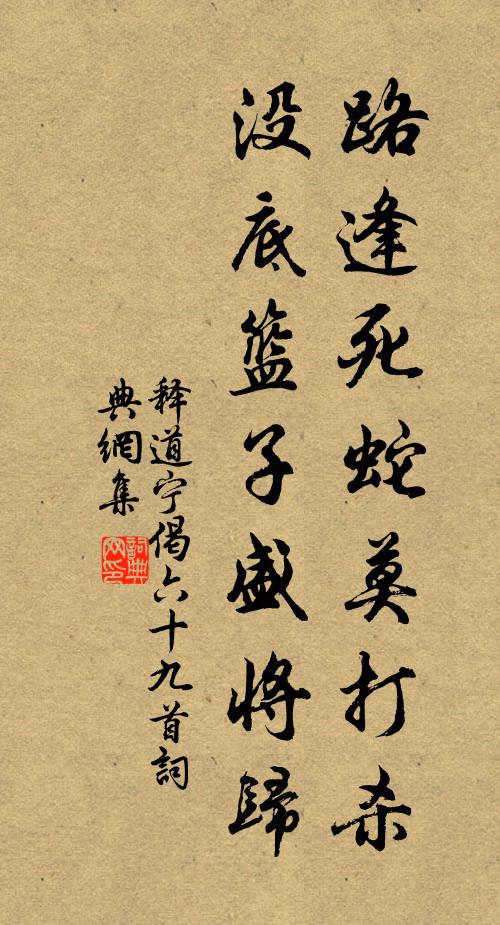 路逢死蛇莫打杀
没底篮子盛将歸
释道宁偈六十九首詞
典網集
詞典
网印